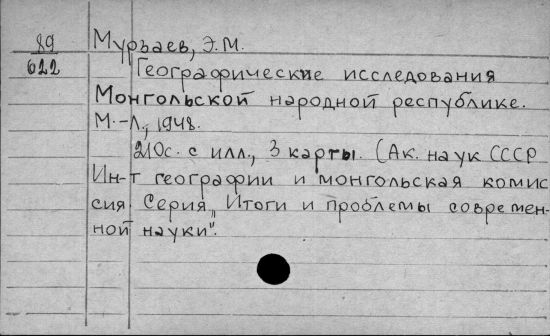 89 Мурзаев, Э.М.
622 Географические исследования
Монгольской народной республике.
М.-Л., 1948.
210с. с илл., 3 карты. (Ак. наук СССР
Ин-т географии и монгольская комис
сия Серия „Итоги и проблемы современ-
ной науки".